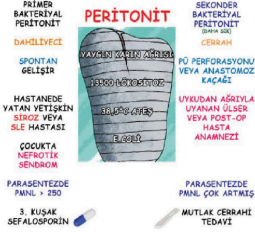 PERİTONİT
PRİMER
BAKTERİYAL
PERİTONİT
DAHİLİYECİ
SPONTAN
GELİŞİR
HASTANEDE
YATAN YETİŞKİN
SİROZ VEYA
SLE HASTASI
ÇOCUKTA
NEFROTİK
SENDROM
PARASENTEZDE
PMNL > 250
3. KUŞAK
SEFALOSPORİN
YAYGIN KARIN AĞRISI
13500 LÖKOSİTOZ
38,5°C ATEŞ
E.COLİ
SEKONDER
BAKTERİYAL
PERİTONİT
(DAHA SIK)
CERRAH
PÜ PERFORASYONU
VEYA ANASTOMOZ
KAÇAĞI
UYKUDAN AĞRIYLA
UYANAN ÜLSER
VEYA POST-OP
HASTA
ANAMNEZİ
PARASENTEZDE
PMNL ÇOK ARTMIŞ
MUTLAK CERRAHİ
TEDAVİ